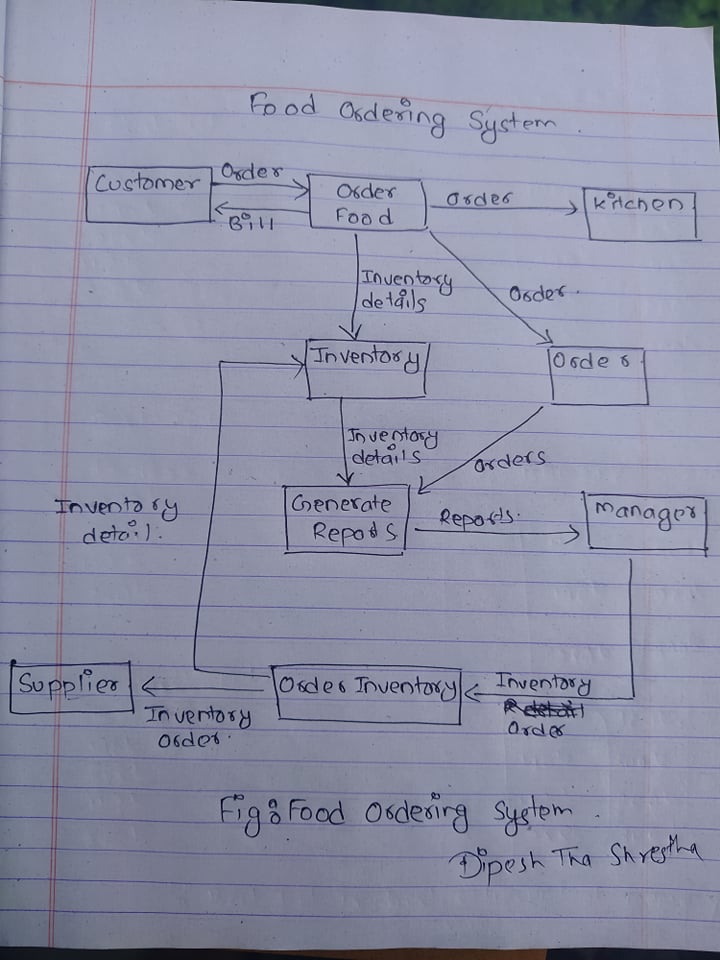 Food Ordering System.
Customer
Order
Bill
Order
Food
Order
Kitchen
Inventory
details
Order.
Inventory
Order
Inventory
details
Orders
Inventory
detail.
Generate
Reports
Reports.
Manager
Supplier
Inventory
order.
Order Inventory
Inventory
Order
Fig: Food Ordering System.
Dipesh Tha Shrestha